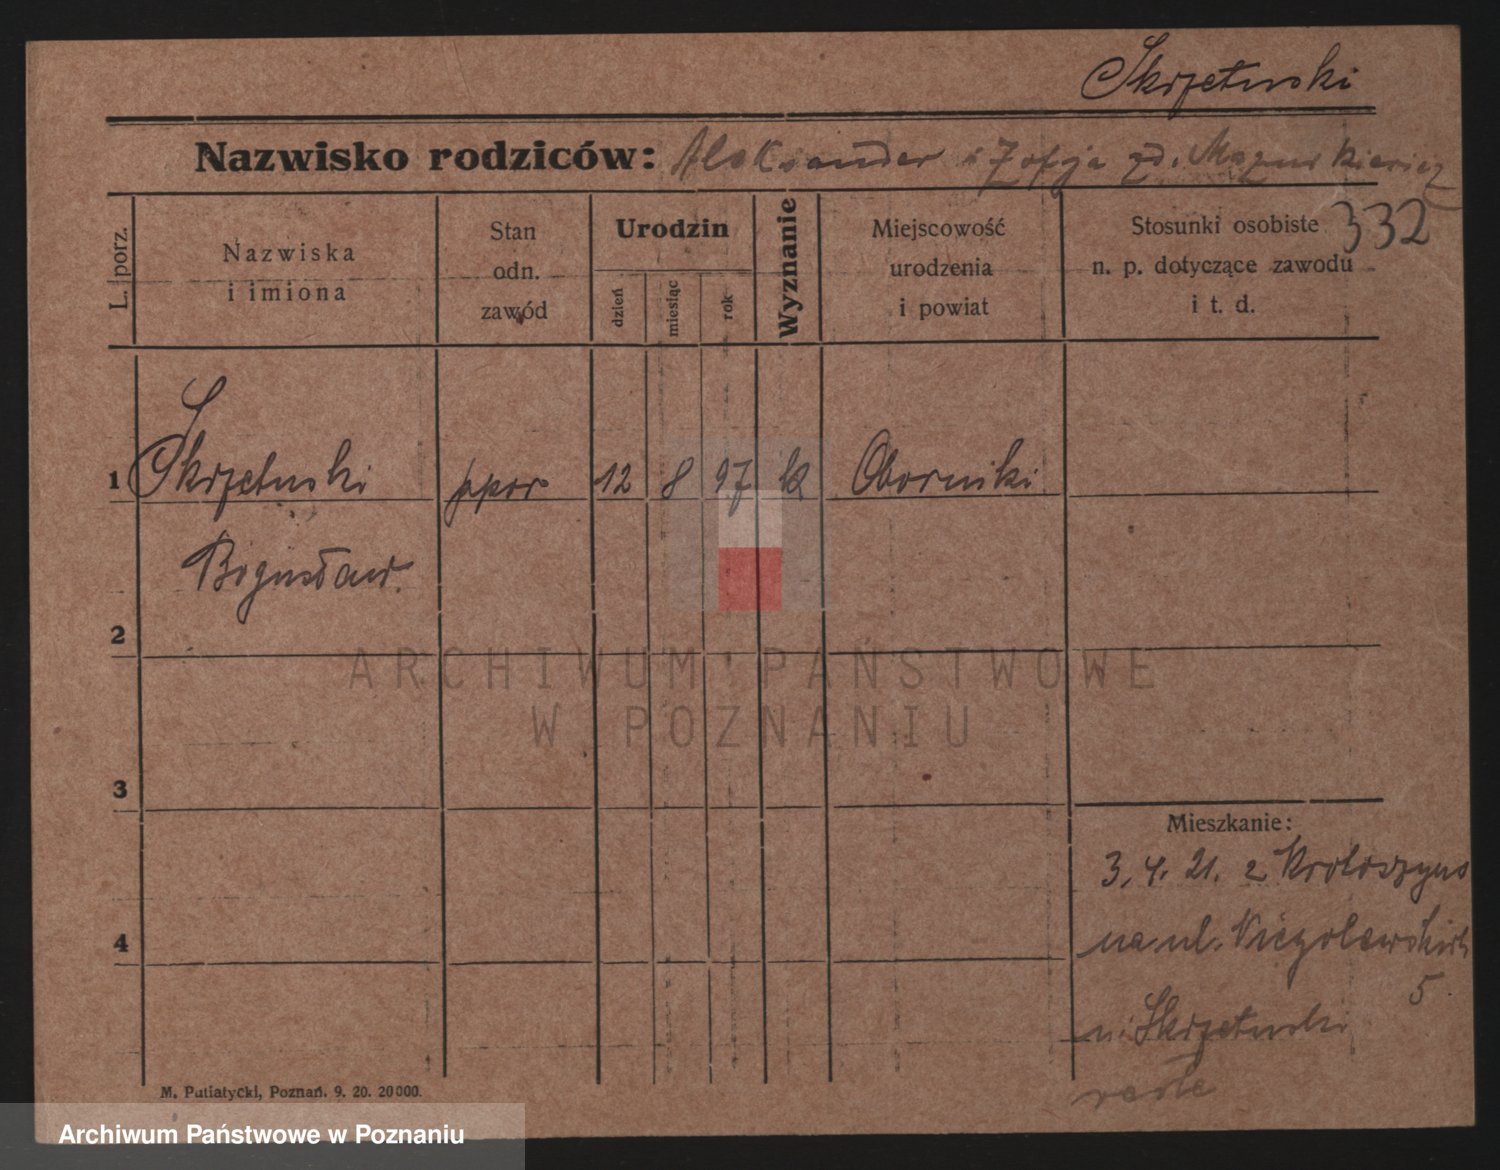 Skrzetuski
Nazwisko rodziców: Aleksander i Zofja zd. Mazurkiewicz
332
L. porz.
Nazwiska
i imiona
Stan
odn.
zawód
Urodzin
dzień
miesiąc
rok
Wyznanie
Miejscowość
urodzenia
i powiat
Stosunki osobiste
n. p. dotyczące zawodu
i t. d.
1 Skrzetuski ppor 12 8 97 k Oborniki
Bogusław.
2
3
4
Mieszkanie:
3. 4. 21. z Krotoszyna
na ul. Niegolewskich
5
u. Skrzetuski
M. Putiatycki, Poznań. 9. 20. 20000.
ARCHIWUM PAŃSTWOWE
W POZNANIU
Archiwum Państwowe w Poznaniu